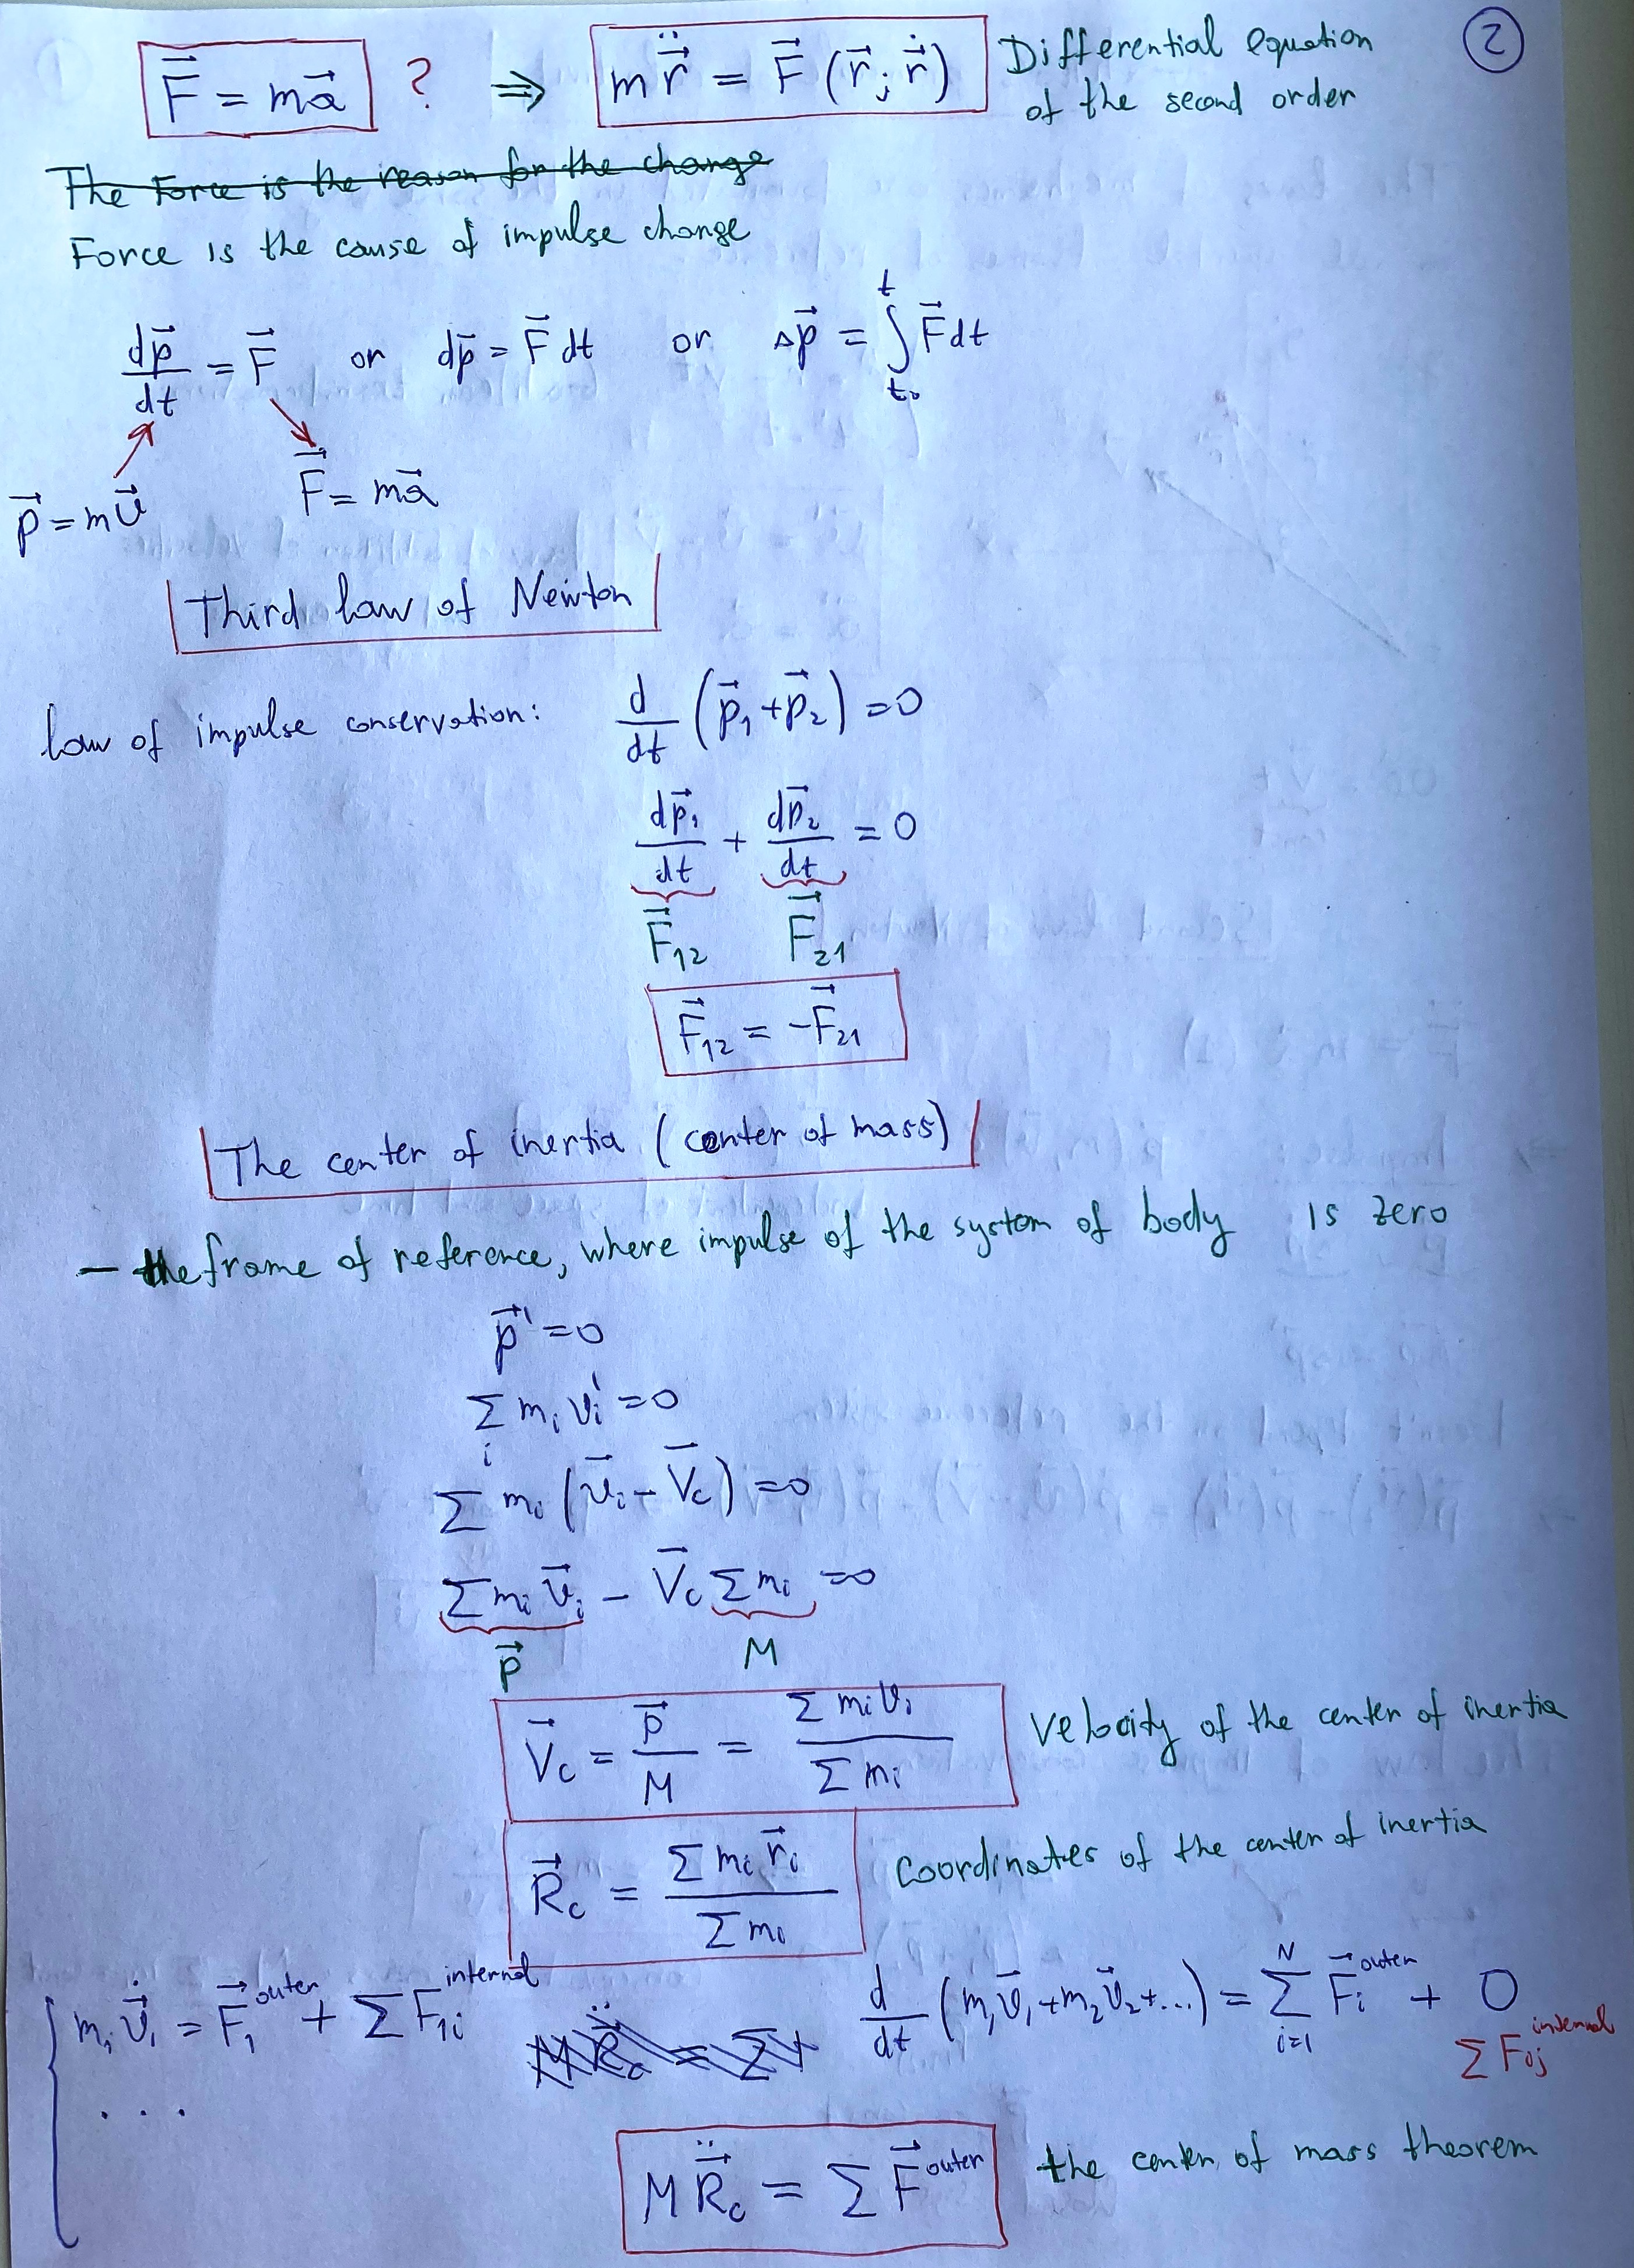 ②
F⃗ = ma⃗ ? ⇒ mr⃗̈ = F⃗ (r⃗; r⃗̇) Differential equation of the second order
The Force is the reason for the change
Force is the cause of impulse change
dp⃗/dt = F⃗ or dp⃗ = F⃗dt or Δp⃗ = ∫_{t₀}^{t} F⃗dt
p⃗ = mv⃗ F⃗ = ma⃗
Third law of Newton
Law of impulse conservation: d/dt (p⃗₁ + p⃗₂) = 0
dp⃗₁/dt + dp⃗₂/dt = 0
F⃗₁₂ F⃗₂₁
F⃗₁₂ = -F⃗₂₁
The center of inertia (center of mass)
- the frame of reference, where impulse of the system of body is zero
p⃗' = 0
∑_i m_i v_i' = 0
∑ m_i (v⃗_i - V⃗_c) = 0
∑ m_i v⃗_i - V⃗_c ∑ m_i = 0
p⃗ M
V⃗_c = p⃗/M = ∑ m_i v_i / ∑ m_i Velocity of the center of inertia
R⃗_c = ∑ m_i r⃗_i / ∑ m_i Coordinates of the center of inertia
m₁v⃗̇₁ = F⃗₁^outer + ∑ F_1i^internal
. . .
d/dt (m₁v⃗₁ + m₂v⃗₂ + ...) = ∑_{i=1}^{N} F⃗_i^outer + 0
∑ F_ij^internal
M R⃗̈_c = ∑ F⃗^outer the center of mass theorem